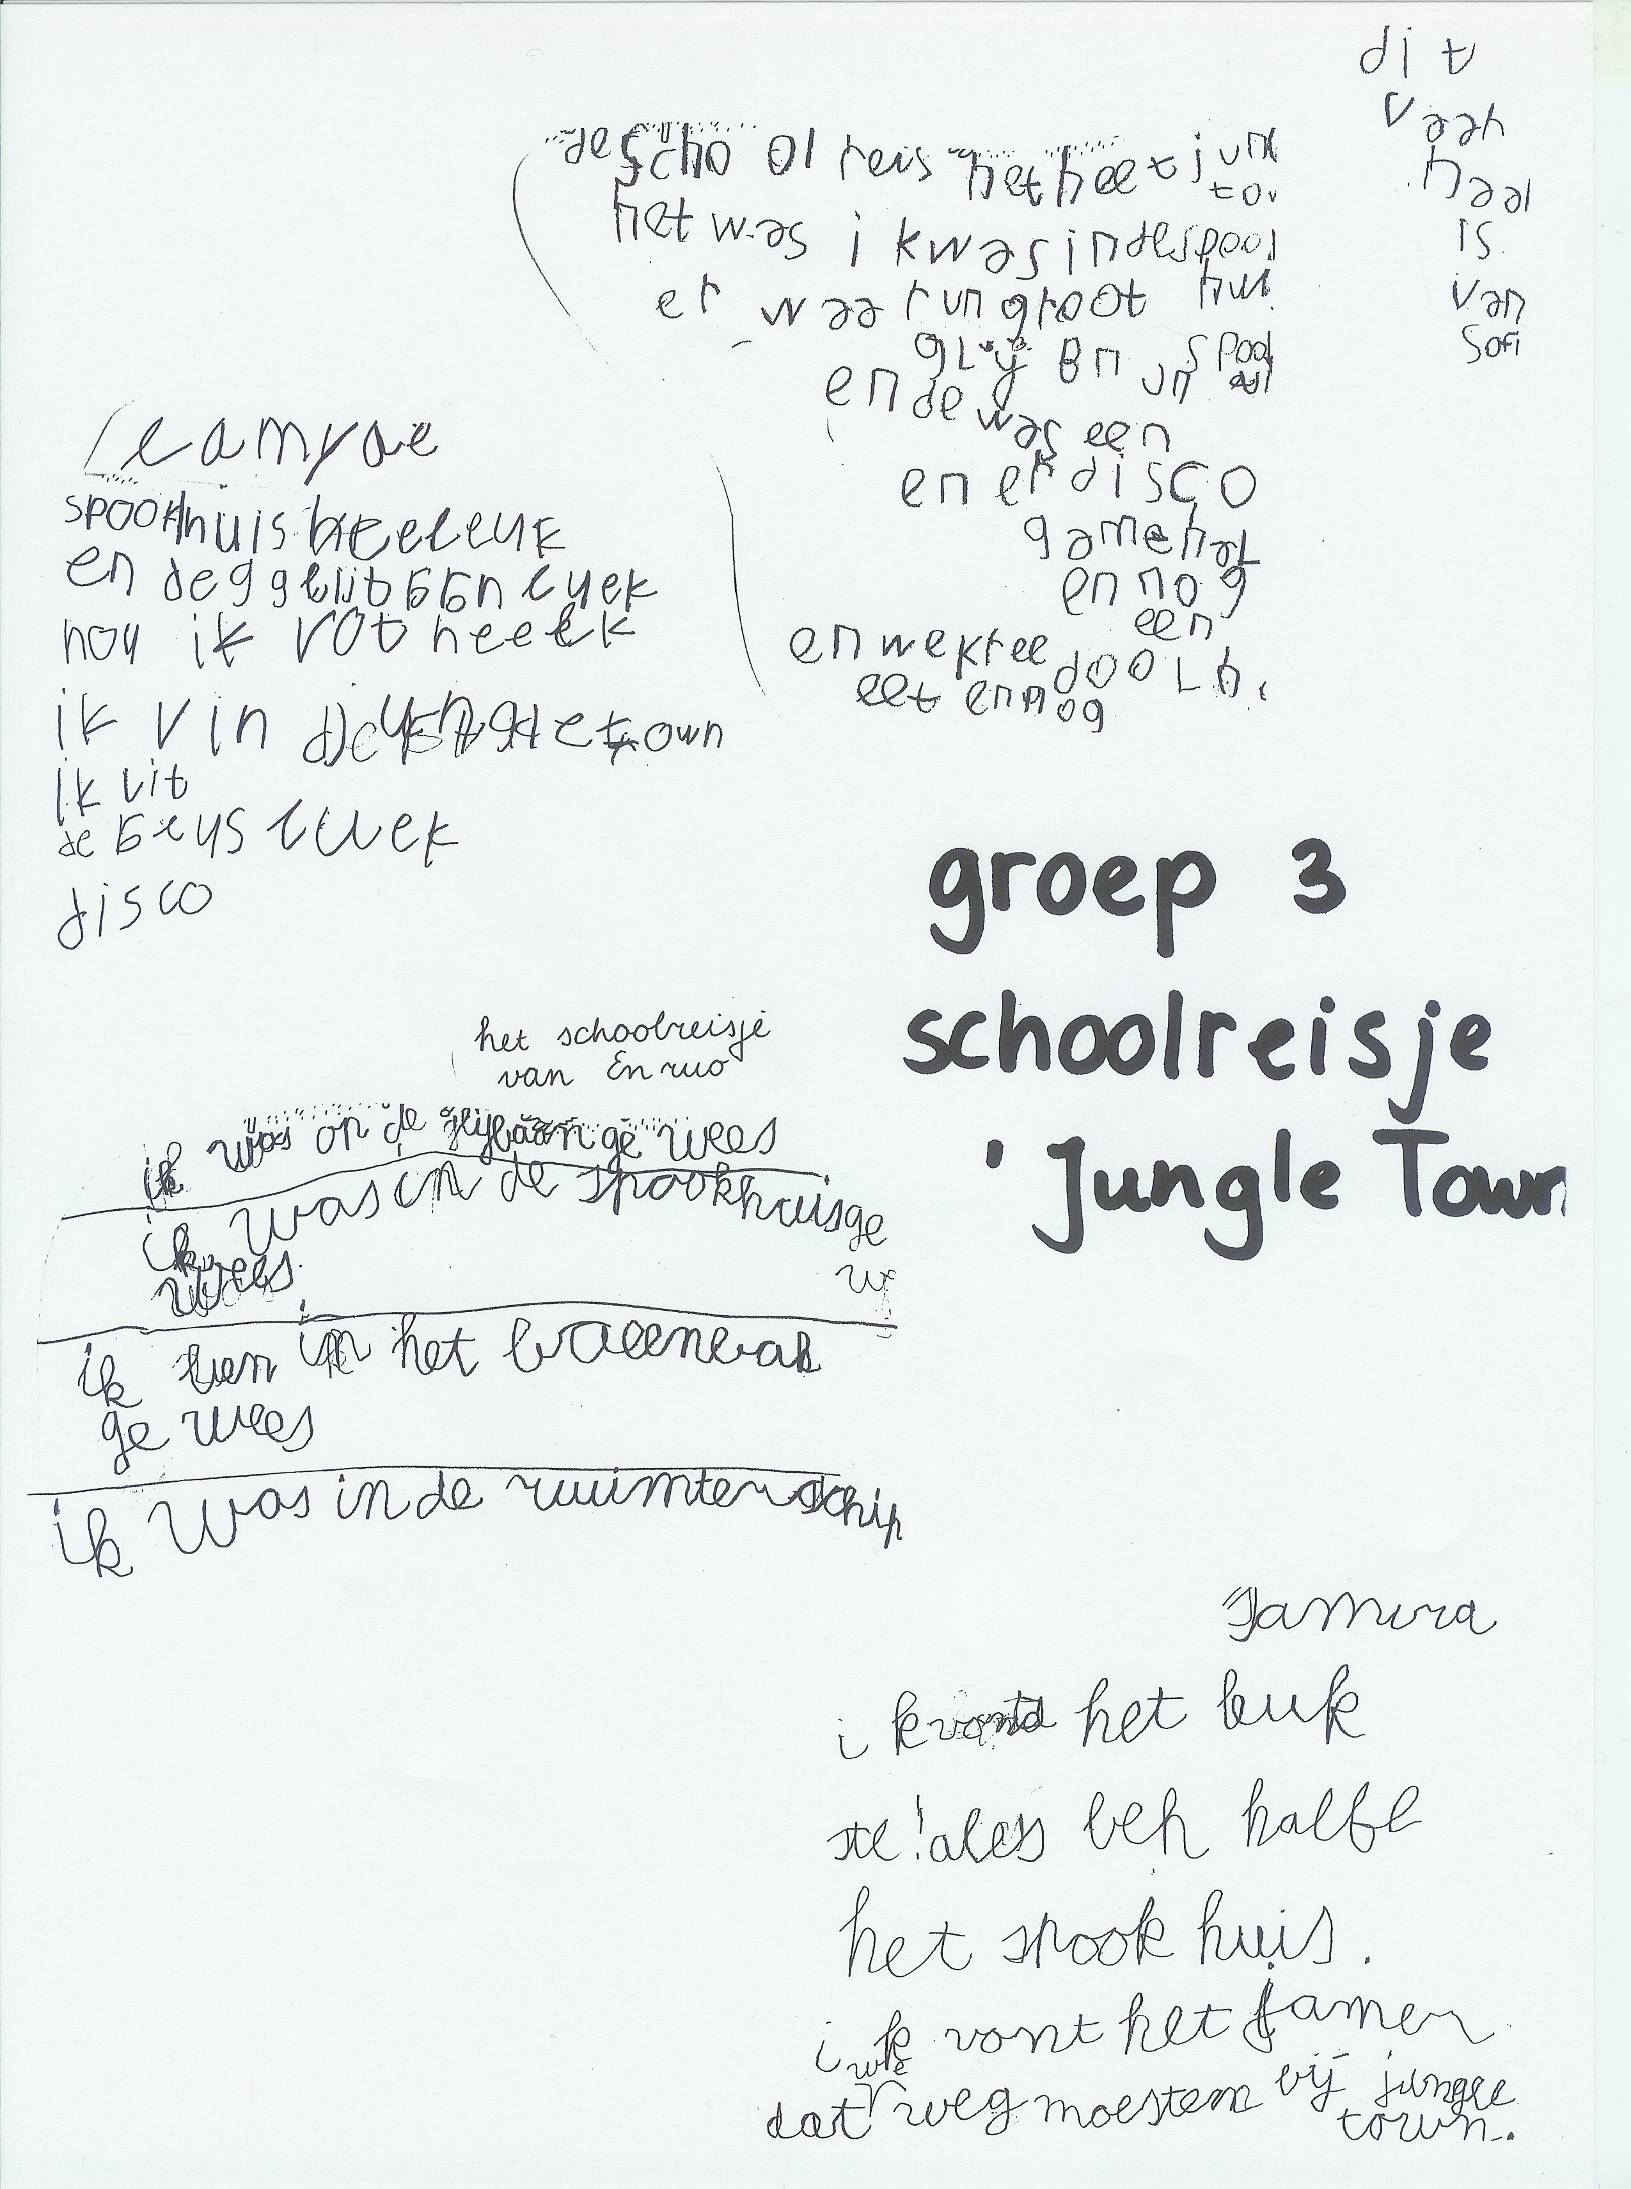 dit
vaar
haal
is
van
sofi
de scho ol reis het heet jun
to
het was ik was in de spoo
er waar un groot hui
glij Bn un spoo
en de was een
en er disco
game hal
en nog
een
en we kree doolh
eet en nog
Leamyae
spookhuis heeleuk
en de gglitBBn luek
nou ik vot heelk
ik vin town
ik vit
de Beys luuek
disco
groep 3
schoolreisje
'Jungle Town
het schoolreisje
van Enruo
ik was op de glijbaan ge wees
ik was in de spookhuis ge
wees we
ik ben in het ballenbak
ge wees
ik was in de ruimterschip
Jamura
ik vontd het leuk
ste! ales beh halfe
het spook huis.
ik vont het jamer
we
dat weg moesten bij jungle
town.